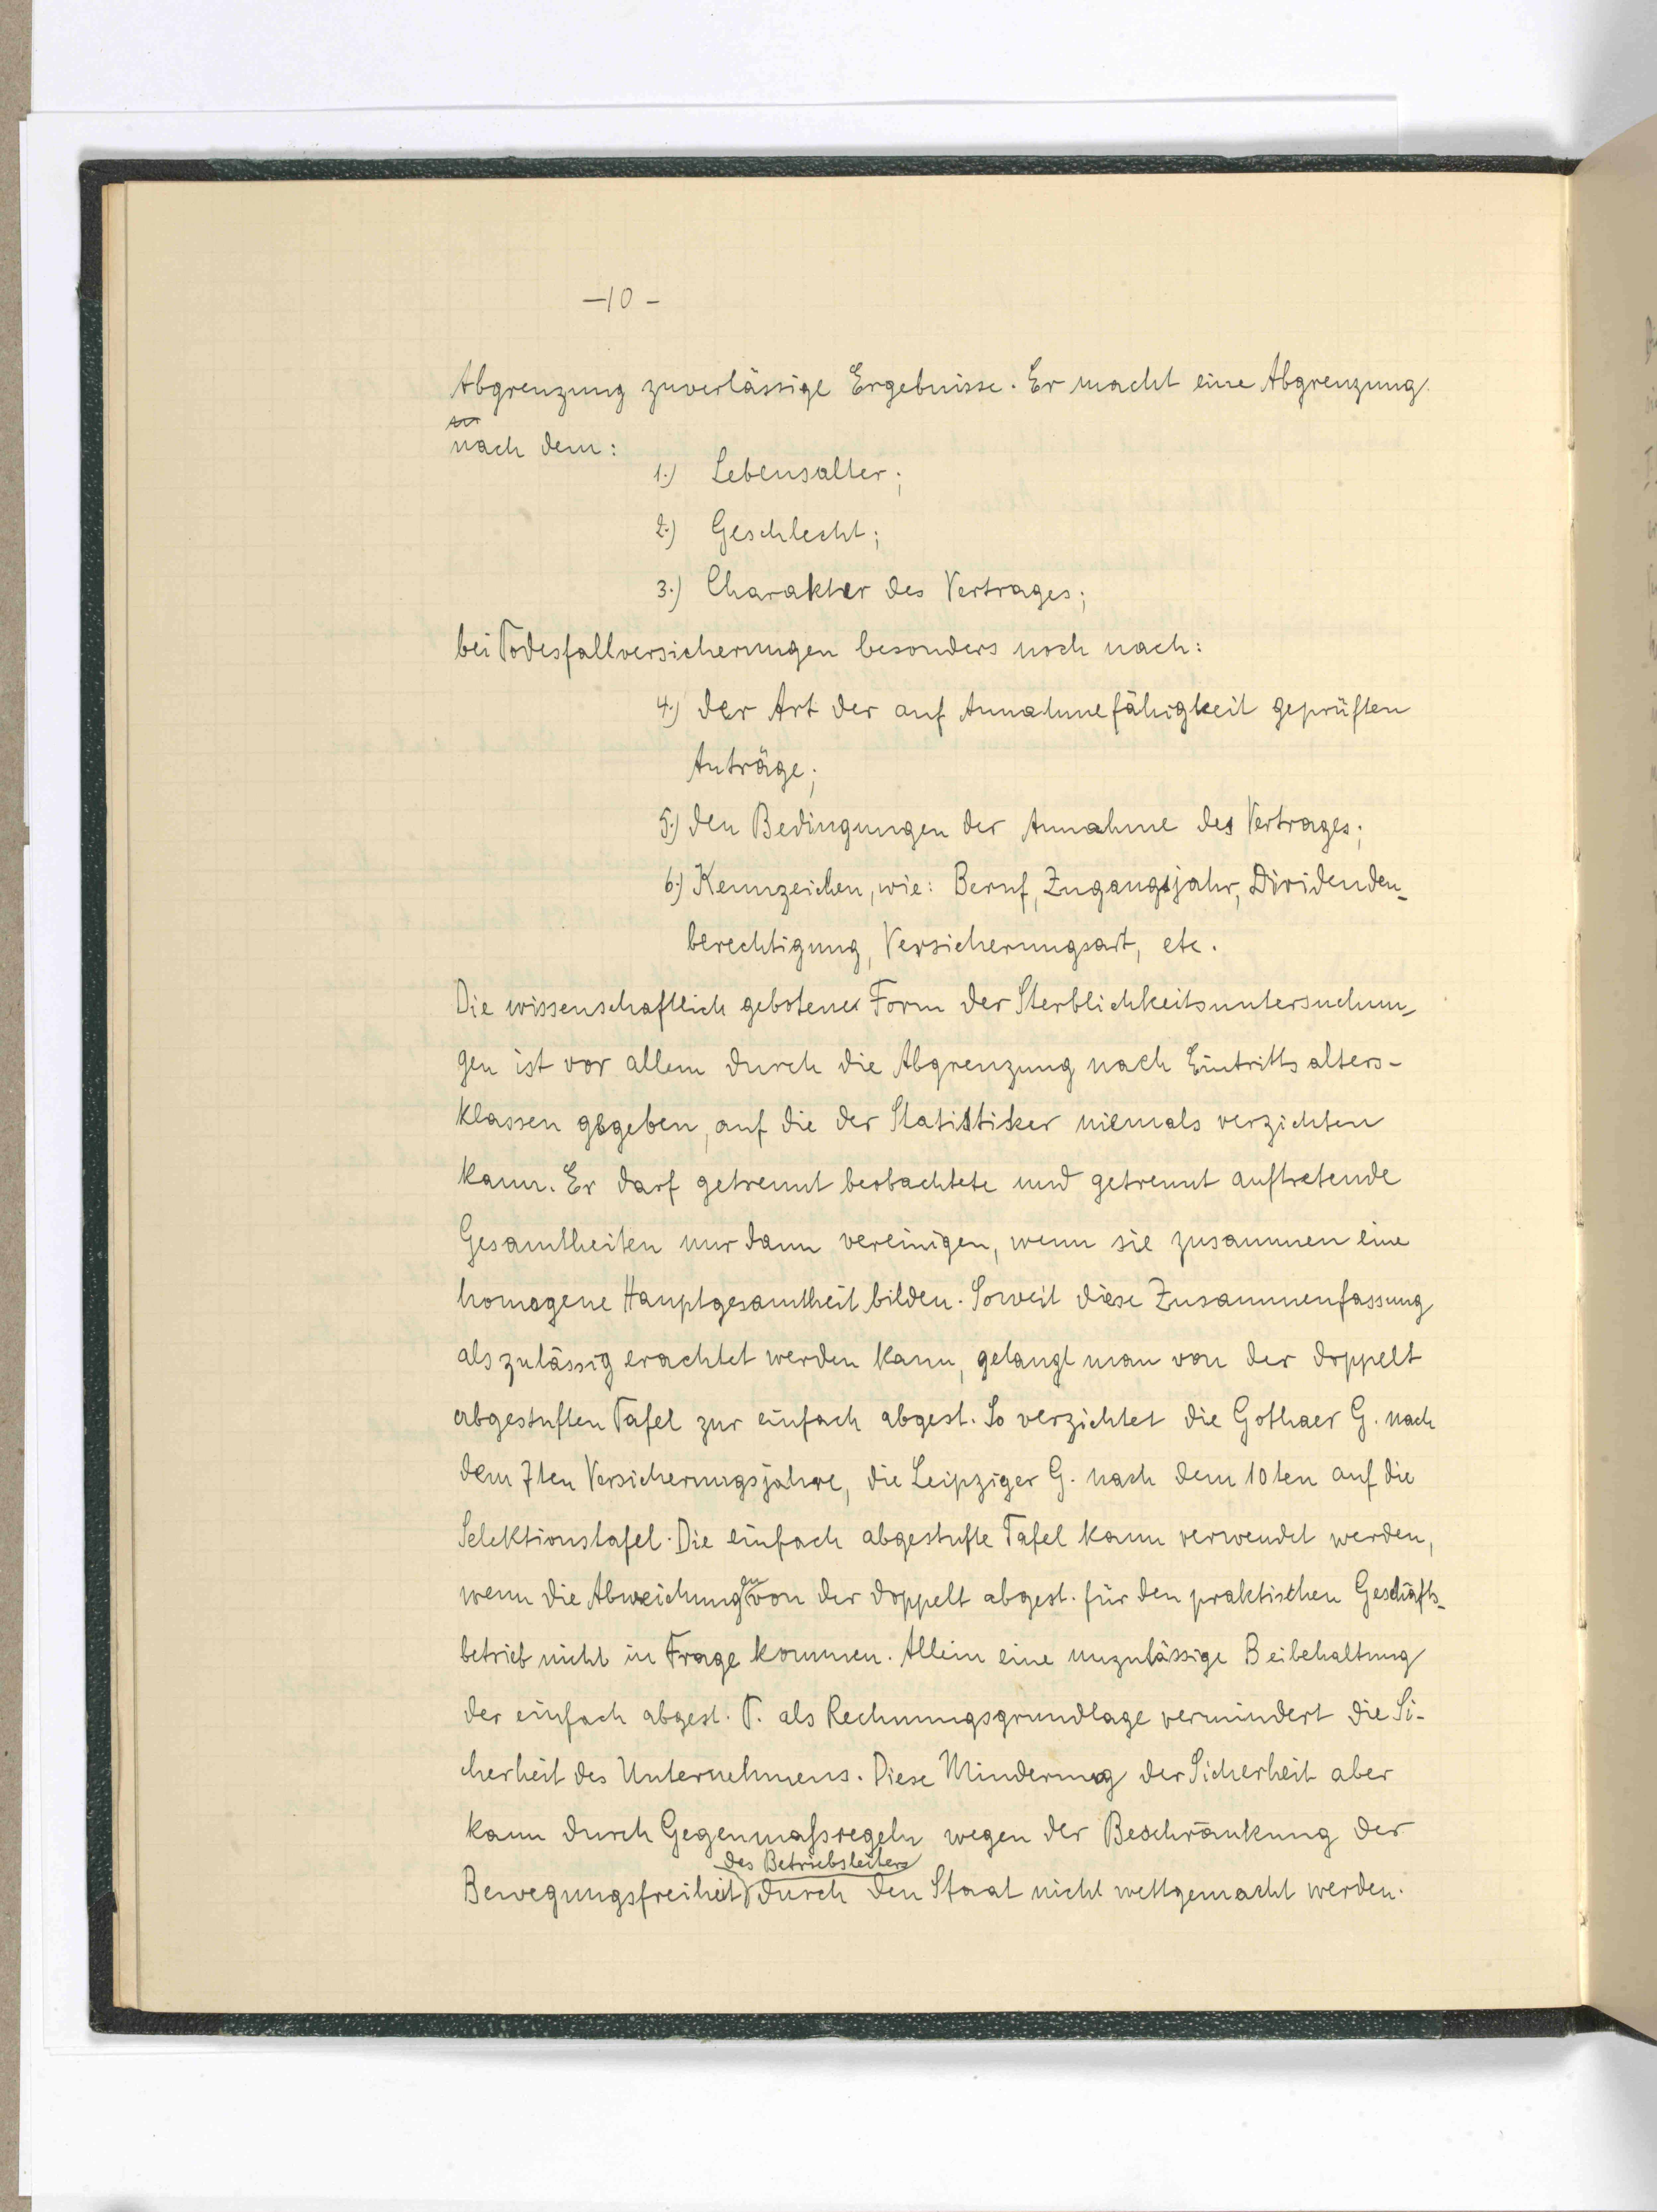 -10-
Abgrenzung zuverlässige Ergebnisse. Er macht eine Abgrenzung
nach dem:
1.) Lebensalter;
2.) Geschlecht;
3.) Charakter des Vertrages;
bei Todesfallversicherungen besonders noch nach:
4.) der Art der auf Annahmefähigkeit geprüften
Anträge;
5.) den Bedingungen der Annahme des Vertrages;
6.) Kennzeichen, wie: Beruf, Zugangsjahr, Dividenden-
berechtigung, Versicherungsart, etc.
Die wissenschaftlich gebotene Form der Sterblichkeitsuntersuchun-
gen ist vor allem durch die Abgrenzung nach Eintrittsalters-
klassen gegeben, auf die der Statistiker niemals verzichten
kann. Er darf getrennt beobachtete und getrennt auftretende
Gesamtheiten nur dann vereinigen, wenn sie zusammen eine
homogene Hauptgesamtheit bilden. Soweit diese Zusammenfassung
als zulässig erachtet werden kann, gelangt man von der doppelt
abgestuften Tafel zur einfach abgest. So verzichtet die Gothaer G. nach
dem 7ten Versicherungsjahre, die Leipziger G. nach dem 10ten auf die
Selektionstafel. Die einfach abgestufte Tafel kann verwendet werden,
wenn die Abweichungen von der doppelt abgest. für den praktischen Geschäfts-
betrieb nicht in Frage kommen. Allein eine unzulässige Beibehaltung
der einfach abgest. T. als Rechnungsgrundlage vermindert die Si-
cherheit des Unternehmens. Diese Minderung der Sicherheit aber
kann durch Gegenmassregeln wegen der Beschränkung der
Bewegungsfreiheit des Betriebsleiters durch den Staat nicht wettgemacht werden.